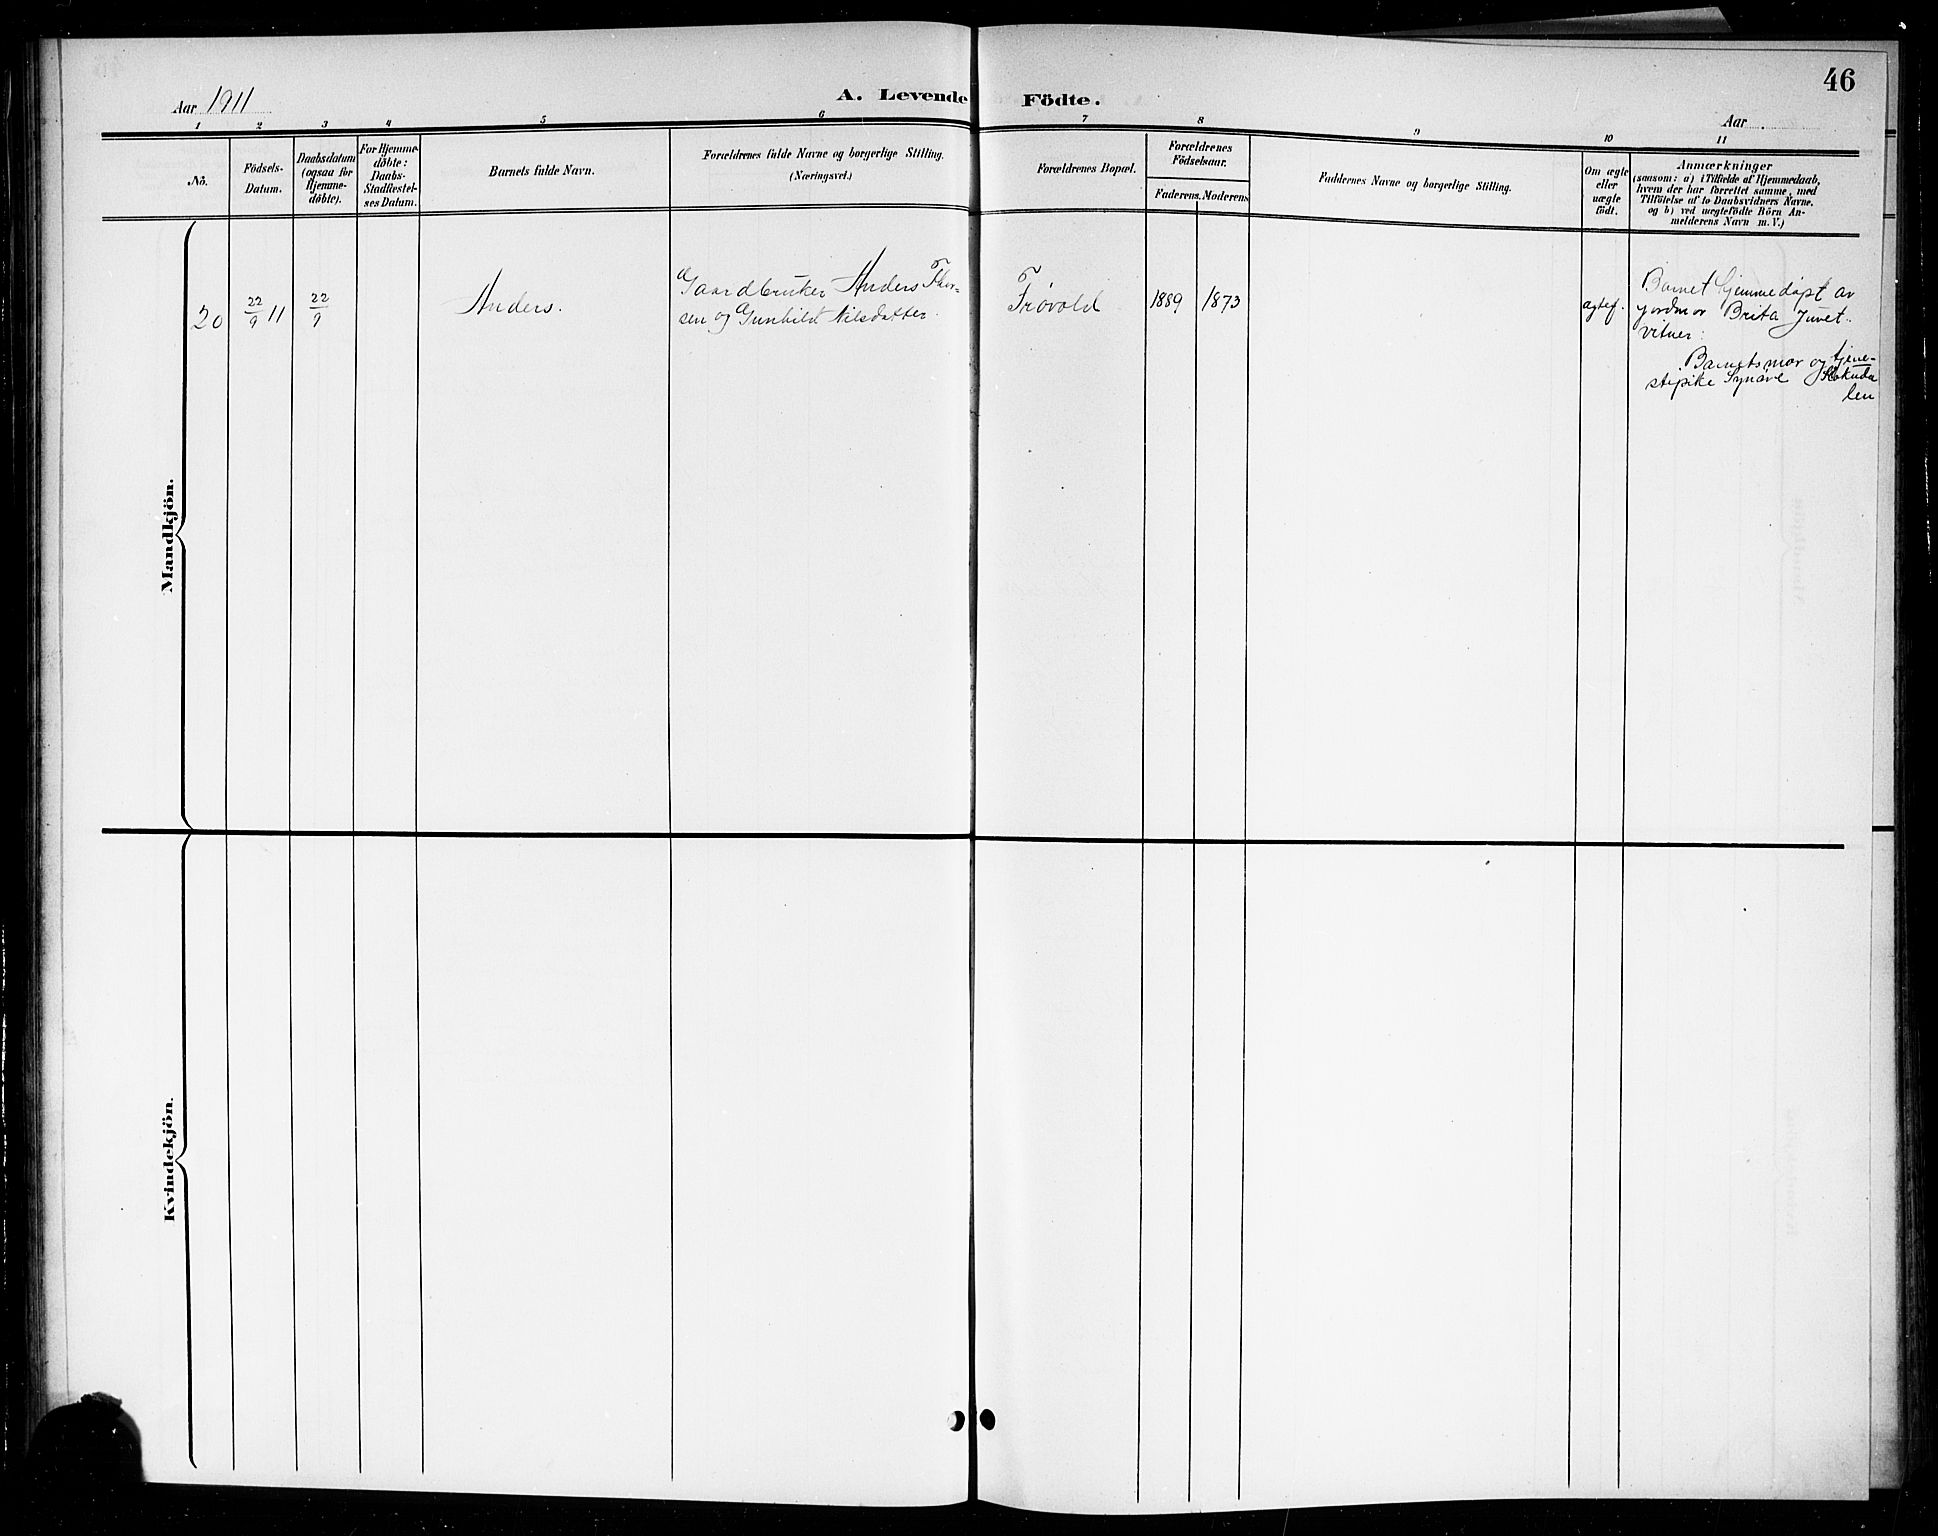 46
Aar 1911
A. Levende Födte.
Aar
1 2 3 4 5 6 7 8 9 10 11
No.
Födsels-
Datum.
Daabsdatum
(ogsaa for
Hjemme-
döbte).
For Hjemme-
döbte:
Daabs-
Stadfæstel-
ses Datum.
Barnets fulde Navn.
Forældrenes fulde Navne og borgerlige Stilling.
(Næringsvei.)
Forældrenes Bopæl.
Forældrenes
Födselsaar.
Faderens. Moderens.
Faddernes Navne og borgerlige Stilling.
Om ægte
eller
uægte
födt.
Anmærkninger
(saasom: a) i Tilfælde af Hjemmedaab,
hvem der har forrettet samme, med
Tilföielse af to Daabsvidners Navne.
og b) ved uægtefödte Börn An-
melderens Navn m. V.)
Mandkjön.
20
22/9 11
22/9
Anders.
Gaardbruker Anders Thor-
sen og Gunhild Nilsdatter.
Frøvold
1889
1873
ægtef.
Barnet hjemmedøpt av
jordmor Brita Juvet.
Vitner:
Barnets mor og tjene-
stepike Synøve
len
Kvindekjön.